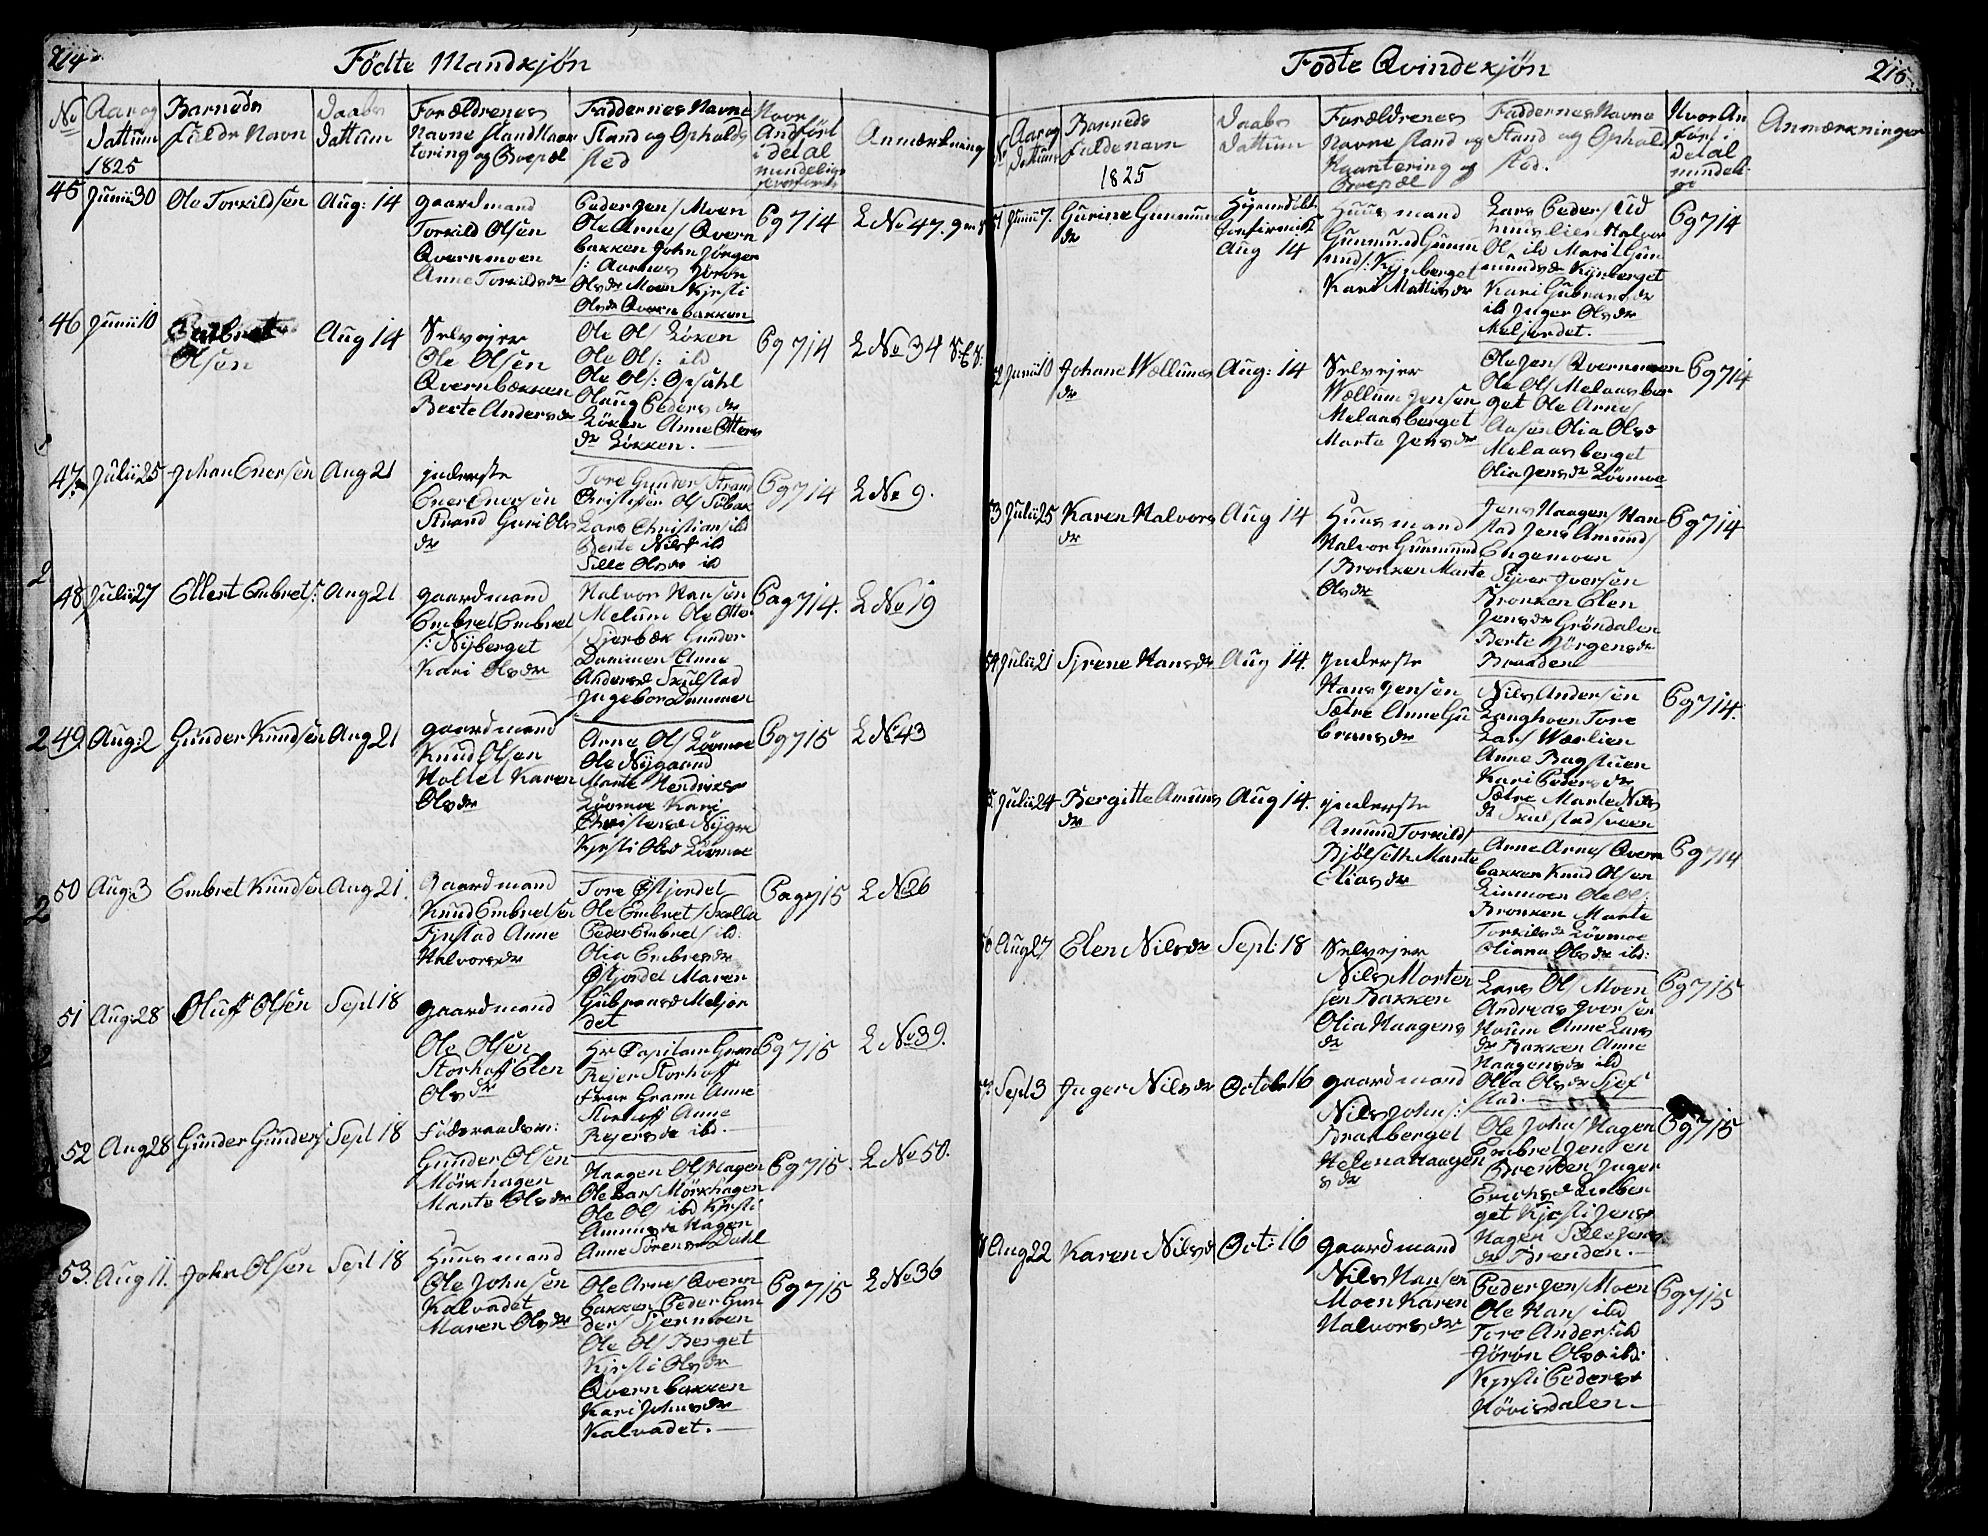 214
Födte Mandkjøn
No
Aar og
Dattum
1825
Barneds
fulde Navn
Daabs
Dattum
Forældrenes
Navne Stand Haan
tering og Boepæl
Faddernes Navne
Stand og Opholds
sted
Hvor
Anført
i det al
mindelige
Anmærkning
45
Junii 30
Ole Torkildsen
Aug: 14
gaardmand
Torkild Olsen
Qvernmoen
Anne Torkildsdr
Peder Jens/ Moen
Ole Arnes/ Qvern
bakken John Jörgen
/: Aarnes Joron
Olsdr Moen Kjrsti
Olsdr Qvernbakken
Pg 714
L No 47.
46
Junii 10
Olsen
Aug 14
Selvejer
Ole Olsen
Qvernbækken
Berte Andersdr
Ole Ols/ Löken
Ole Ols: ild
Ole Ols: Opsahl
Olaug Pedersdr
Löken Anne Otters
dr Lökken.
Pg 714
L No 34
47.
Julii 25
Johan Enersen
Aug 21
jnderste
Ener Enersen
Strand Guri Ols
dr
Tore Gunders/ Strand
Christofer Ols/ Sübak
Lars Christians/ ild
Berte Nilsd ild
Sille Olsdr ild
Pg 714
L No 9.
48
Julii 27
Ellert Embrets:
Aug 21
gaardmand
Embret Embret
/: Nyberget
Kari Olsdr
Halvor Hansen
Melum Ole Otte
/ Sjerbæk Gunder
Dammen Anne
Andersd Skulstad
Jngebor Dammen
Pag 714.
L No 19
49
Aug: 2
Gunder Knudsen
Aug 21
gaardmand
Knud Olsen
Holtet Karen
Olsdr
Arne Ols/ Lövmoe
Ole Nygaard
Marte Hendrixsdr
Lövmoe Kari
Christensd Nygrd
Kjrsti Olsd Lövmoe
Pg 715
L No 43
50
Aug: 3
Embret Knudsen
Aug 21.
Gaardmand
Knud Embretsen
Fjnstad Anne
Halvorsdr
Tore Østjordet
Ole Embret/ Skolla
Peder Embrets/ ild:
Olia Embresdr
Østjordet Maren
Gubransd Meljor
det
Pag 715
L No 26
51
Aug: 28
Oluff Olsen
Sept 18
gaardmand
Ole Olsen
Storhoff Elen
Olsdr
Hr Capitain Gram
Rejer Storhoff
Frue Gram Anne
Storhoff Anne
Rejersdr ibd.
Pg 715
L No 39.
52
Aug 28
Gunder Gunders/
Sept 18
Föderaadsm:
Gunder Olsen
Mörkhagen
Marte Olsdr
Haagen Ols/ Hagen
Ole Lars/ Mörkhagen
Ole Ols/ ibd Kjrsti
Hagen
Anne Sörensdr Dahl
Pg 715.
L No 50.
53.
Aug 11.
John Olsen
Sept 18
Huusmand
Ole Johnsen
Kalvadet
Maren Olsdr
Ole Arnes/ Qvern
bakken Peder Gun
ders/ Sjermoen
Ole Ols/ Berget
Kjrsti Olsdr
Qvernbakken
Kari Johnsdr
Kalvadet.
Pg 715
L No 36
Fødte Qvindekjøn
215
No
Aar og
Dattum
Barneds
Fuldenavn
1825
Daabs
Dattum
Forældrenes
Navne Stand og
Haantering og
Boepæl
Faddernes Navne
Stand og Ophold
sted.
Hvor An
ført i
det al
mindeli
ge
Anmærkninger
51
Junii 7.
Gurine Gunmuns
dr
Hjemdöbt
Confirmert
Aug 14
Huusmand
Gunmund Gunm
und/: Kynberget
Kari Mattisdr
Lars Peders/ Ud
huuslien Halvor
Ol/ ild Marit Gun
mundsdr Kynberget
Kari Gubransdr
ild Jnger Olsdr
Meljordet.
Pg 714
52
Junii 10
Johane Wællums
dr
Aug: 14
Selvejer
Wællum Jensen
Melaasberget
Marte Jensdr
Ole Jens/ Qvernmoen
Ole Ols/ Melaasber
get Ole Arne/
Aasen Olia Olsd
Melaasberget
Olia Jensdr Lövmoe
Pg 714
53
Julii 25
Karen Halvors
dr
Aug 14
Huusmand
Halvor Gunmund
/ Bronken Marte
Olsdr
Jens Haagens/ Han
stad Jens Amund/
Engemoen
Syver Jversen
Bronken Elen
Jensdr Gröndalen
Berte Jörgensdr
Braaden
Pg 714
54
Julii 21
Sjrene Hansdr
Aug 14.
jnderste
Hans Jensen
Sætre Anne Gu
bransdr
Nils Andersen
Langhoen Tore
Lars/ Wærlien
Anne Bagstuen
Kari Pedersdr
Sætre Marte Nils
dr Skulstadsveen
Pg 714.
55
Julii 24
Bergitte Amuns
dr
Aug 14.
jnderste
Amund Torkild/
Bjölseth Marte
Eliasdr
Arne Arnes/ Qvern
bakken Knud Olsen
Linmoen Ole Ol/
Bronken Marte
Torkilsdr Lövmoe
Oliana Olsdr ibd:
Pg 714
56
Aug 27
Elen Nilsdr
Sept: 18
Selvejer
Nils Morten
sen Bakken
Olia Haagens
dr
Lars Ols/ Moen
Andreas Jversen
Houm Anne Lars
dr Bakken Anne
Haagensdr ild
Olla Olsdr Sjef
stad.
Pg 715
57
Sept 3
Jnger Nilsdr
Octobr 16
gaardmand
Nils Johns/:
Braaberget
Helena Haagen
sdr
Ole Johns/ Hagen
Embret Jensen
Brenden Jnger
Erichsd Lulber
get Kjrsti Jensdr
Hagen Sille Jens
dr Brenden.
Pg 715
58
Aug 22
Karen Nilsd
Oct: 16
gaardmand
Nils Hansen
Moen Karen
Halvorsdr
Peder Jens/ Moen
Ole Hans/ ibd
Tore Anders: ild
Jörön Olsd ibd:
Kjrsti Pedersdr
Hövisdalen.
Pg 715